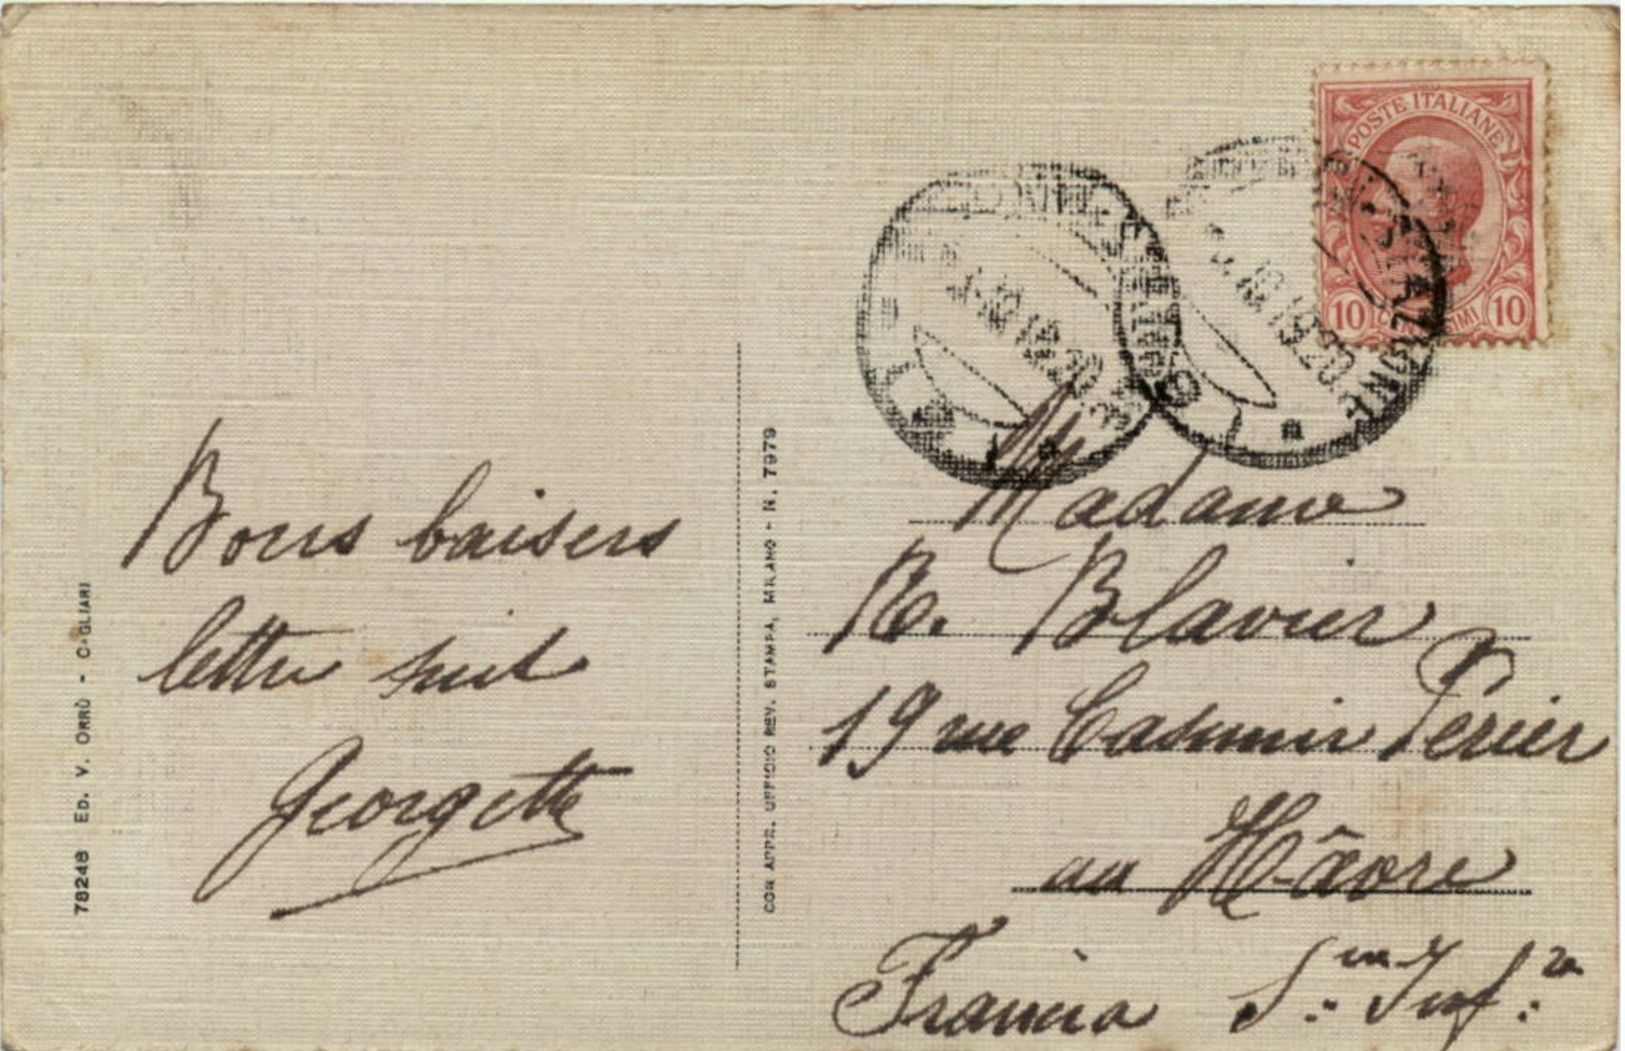 Bons baisers
lettre suit
Georgette
78248 ED. V. ORRÙ - CAGLIARI
CON APPR. UFFICIO REV. STAMPA, MILANO - N. 7979
POSTE ITALIANE
10 CENTESIMI 10
10 1920
Madame
R. Blavier
19 rue Casimir Périer
au Hâvre
Francia S.ne Inf.re